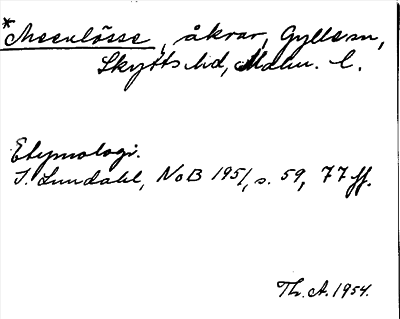 *Meenlösse, åkrar, Gyllsn,
Skytts hd, Malm. l.
Etymologi.
I. Lundahl, NoB 1951, s. 59, 77 ff.
Th. A. 1954.